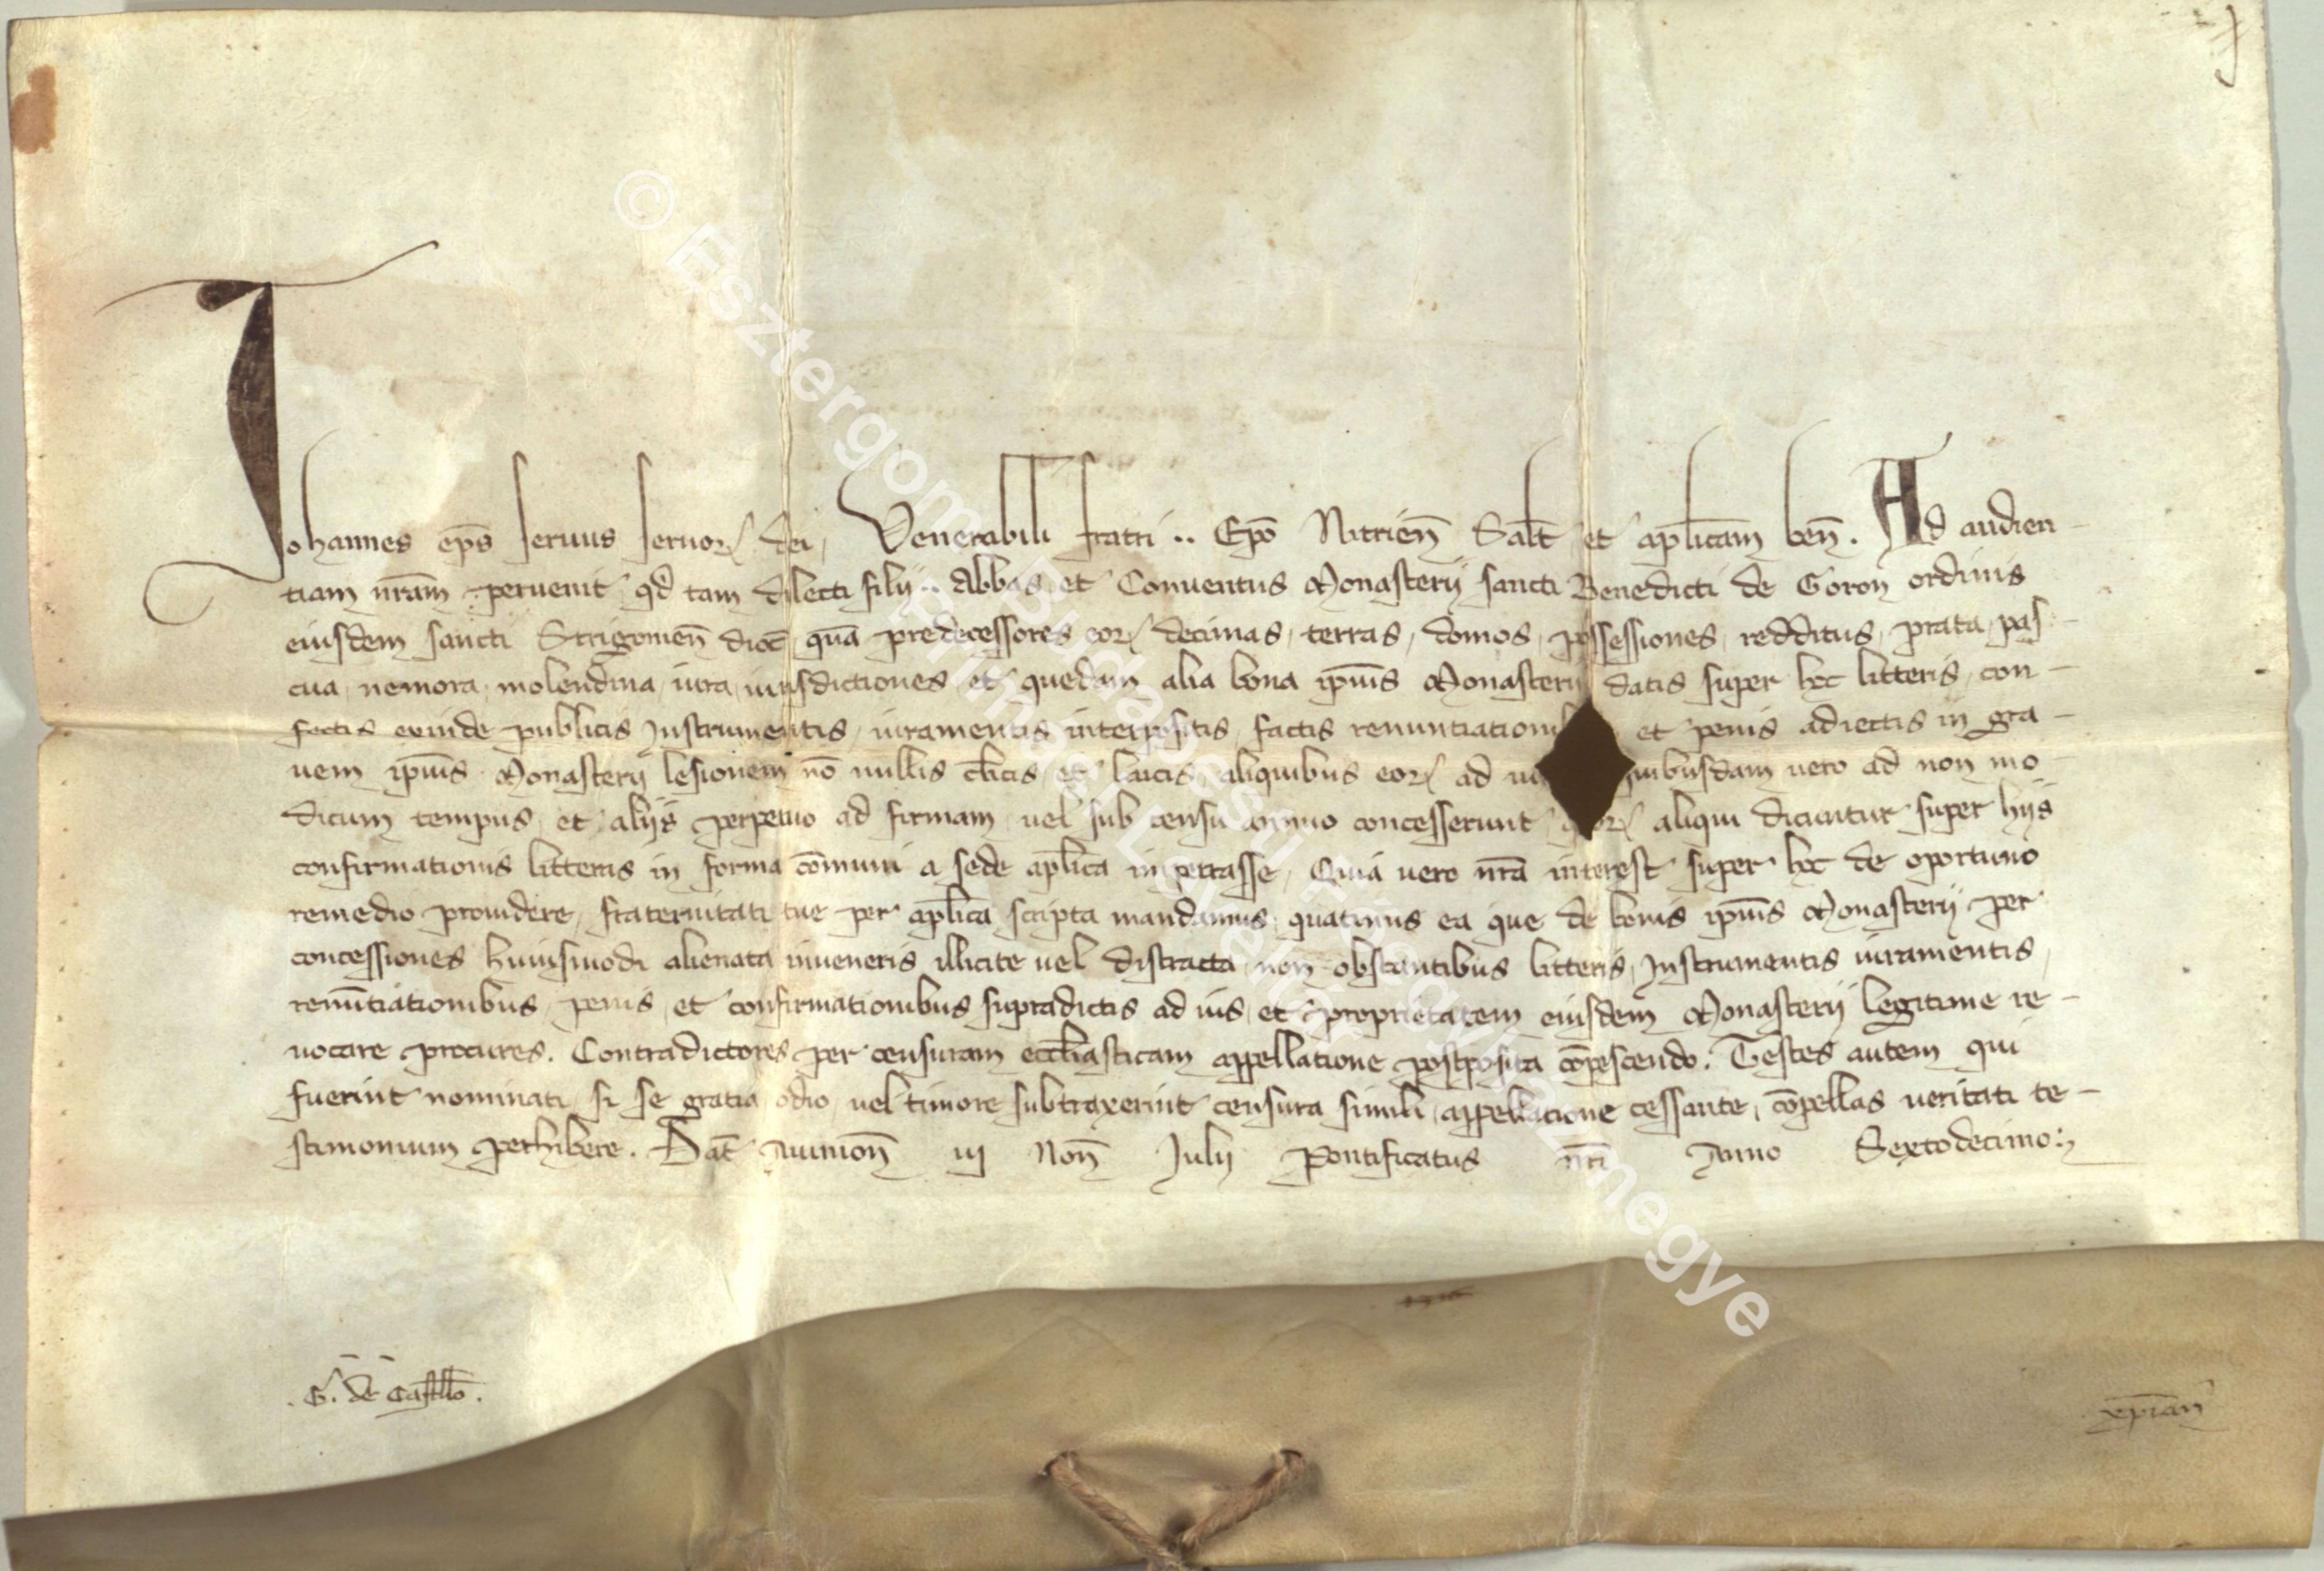 Johannes ep̄s seruus seruoꝝ dei, Venerabili fratri .. Ep̄o Nitrien̄ Salt̄ et apl̄icam ben̄. Ad audien-
tiam nr̄am peruenit qd̓ tam dilecti filij .. Abbas et Conuentus Monasterij sancti Benedicti de Goron ordinis
eiusdem sancti Strigonien̄ dioc̄ qua᷑ predecessores eoꝝ decimas, terras, domos, possessiones, redditus, prata, pas-
cua, nemora, molendina, iura, iurisdictiones et quedam alia bona ip̄ius Monasterij datis super hoc litteris, con-
fectis exinde publicis Instrumentis, iuramentis interpositis, factis renuntiationi et penis adiectis in gra-
uem ip̄ius Monasterij lesionem no᷑nullis cl̄icis et laicis, aliquibus eoꝝ ad ui uibusdam uero ad non mo-
dicum tempus et alijs perpetuo ad firmam uel sub censu annuo concesserunt q oꝝ aliqui dicuntur super hijs
confirmationis litteras in forma co᷑muni a sede apl̄ica impetrasse, Quia uero nr̄a interest super hoc de oportuno
remedio prouidere, fraternitati tue per apl̄ica scripta mandamus, quatinus ea que de bonis ip̄ius Monasterij per
concessiones huiusmodi alienata inueneris illicite uel distracta non obstantibus litteris, Instrumentis iuramentis,
renu᷑tiationibus, penis, et confirmationibus supradictis ad ius et proprietatem eiusdem Monasterij legitime re-
uocare procures. Contradictores per censuram eccl̄iasticam appellatione postposita co᷑pescendo. Testes autem qui
fuerint nominati, si se gratia odio, uel timore subtraxerint censura simili, appellatione cessante, co᷑pellas ueritati te-
stimonium perhibere. Dat̄ Auinion̄ iij Non̄ Julij Pontificatus nr̄i Anno Sextodecimo:
.G. de Castell̄o.
xp̄ian̄
© Esztergom-Budapesti Főegyházmegye
Prímási Levéltár